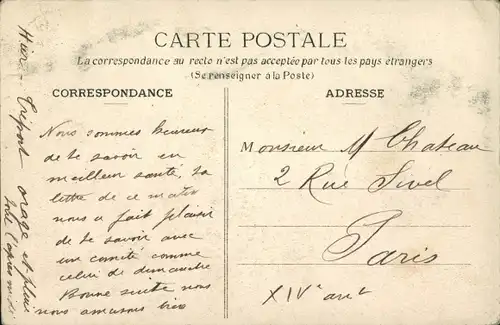 CARTE POSTALE
La correspondance au recto n'est pas acceptée par tous les pays étrangers
(Se renseigner à la Poste)
CORRESPONDANCE
ADRESSE
Nous sommes heureux
de te savoir en
meilleur santé, ta
lettre de ce matin
nous a fait plaisir
de te savoir avec
une comité comme
celui de dimanche
Bonne suite nous
nous amusons bien
Hier - Tréport orage et pluie
toute l'après midi
Monsieur M Chateau
2 Rue Sivel
Paris
XIVe art